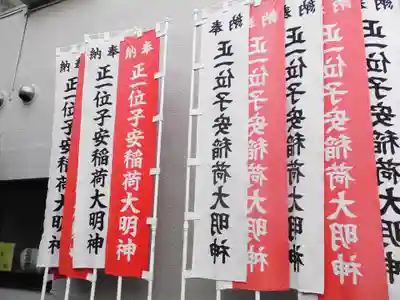 奉納
正一位子安稲荷大明神
奉納
正一位子安稲荷大明神
奉納
正一位子安稲荷大明神
奉納
正一位子安稲荷大明神
奉納
正一位子安稲荷大明神
奉納
正一位子安稲荷大明神
奉納
正一位子安稲荷大明神